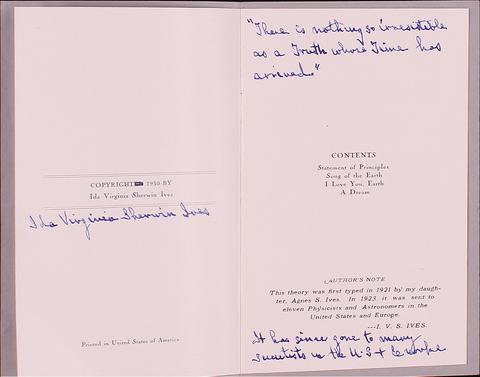 COPYRIGHT 1930 BY
Ida Virginia Sherwin Ives
Ida Virginia Sherwin Ives
Printed in United States of America
"There is nothing so irresistible
as a Truth whose Time has
arrived"
CONTENTS
Statement of Principles
Song of the Earth
I Love You, Earth
A Dream
AUTHOR'S NOTE
This theory was first typed in 1921 by my daugh-
ter, Agnes S. Ives. In 1923 it was sent to
eleven Physicists and Astronomers in the
United States and Europe.
---I. V. S. IVES.
It has since gone to many
scientists in the U.S + Europe